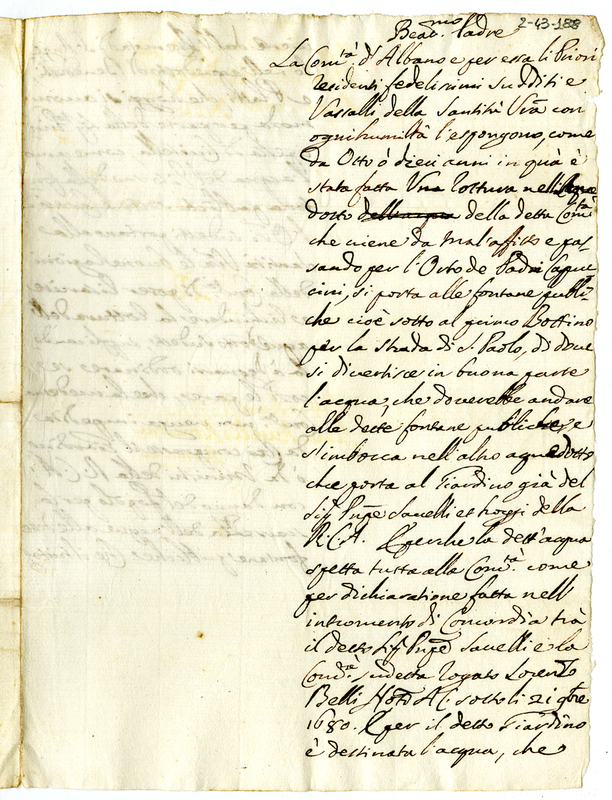 2-43-188
Beat.mo Padre
La Com.tà d'Albano e per essa li Priori
residenti fedelissimi sudditi e
Vassalli della Santità Vrã con
ogni humiltà l'espongono, come
da Otto ò dieci anni in quà è
stata fatta Una rottura nell'Aque
dotto dell'acqua della detta Com.tà
che viene da Mal'affitto e pas-
sando per l'Orto de Padri Capuc
cini, si porta alle fontane publi-
che cioè sotto al primo Bottino
per la strada di S. Paolo, di dove
si divertisce in buona parte
l'acqua, che doverebbe andare
alle dette fontane publiche, e
s'imbocca nell'altro aquedotto
che porta al Giardino già del
Sig.r Prñpe Savelli et hoggi della
R. C. A. E perche la dett'acqua
spetta tutta alla Com.tà come
per dichiaratione fatta nell'
instromento di Concordia trà
il detto Sig.r Prñpe Savelli e la
Com.tà sudetta rogato Lorenzo
Belli Not. A. C. sotto li 21 9bre
1680. E per il detto Giardino
è destinata l'acqua, che